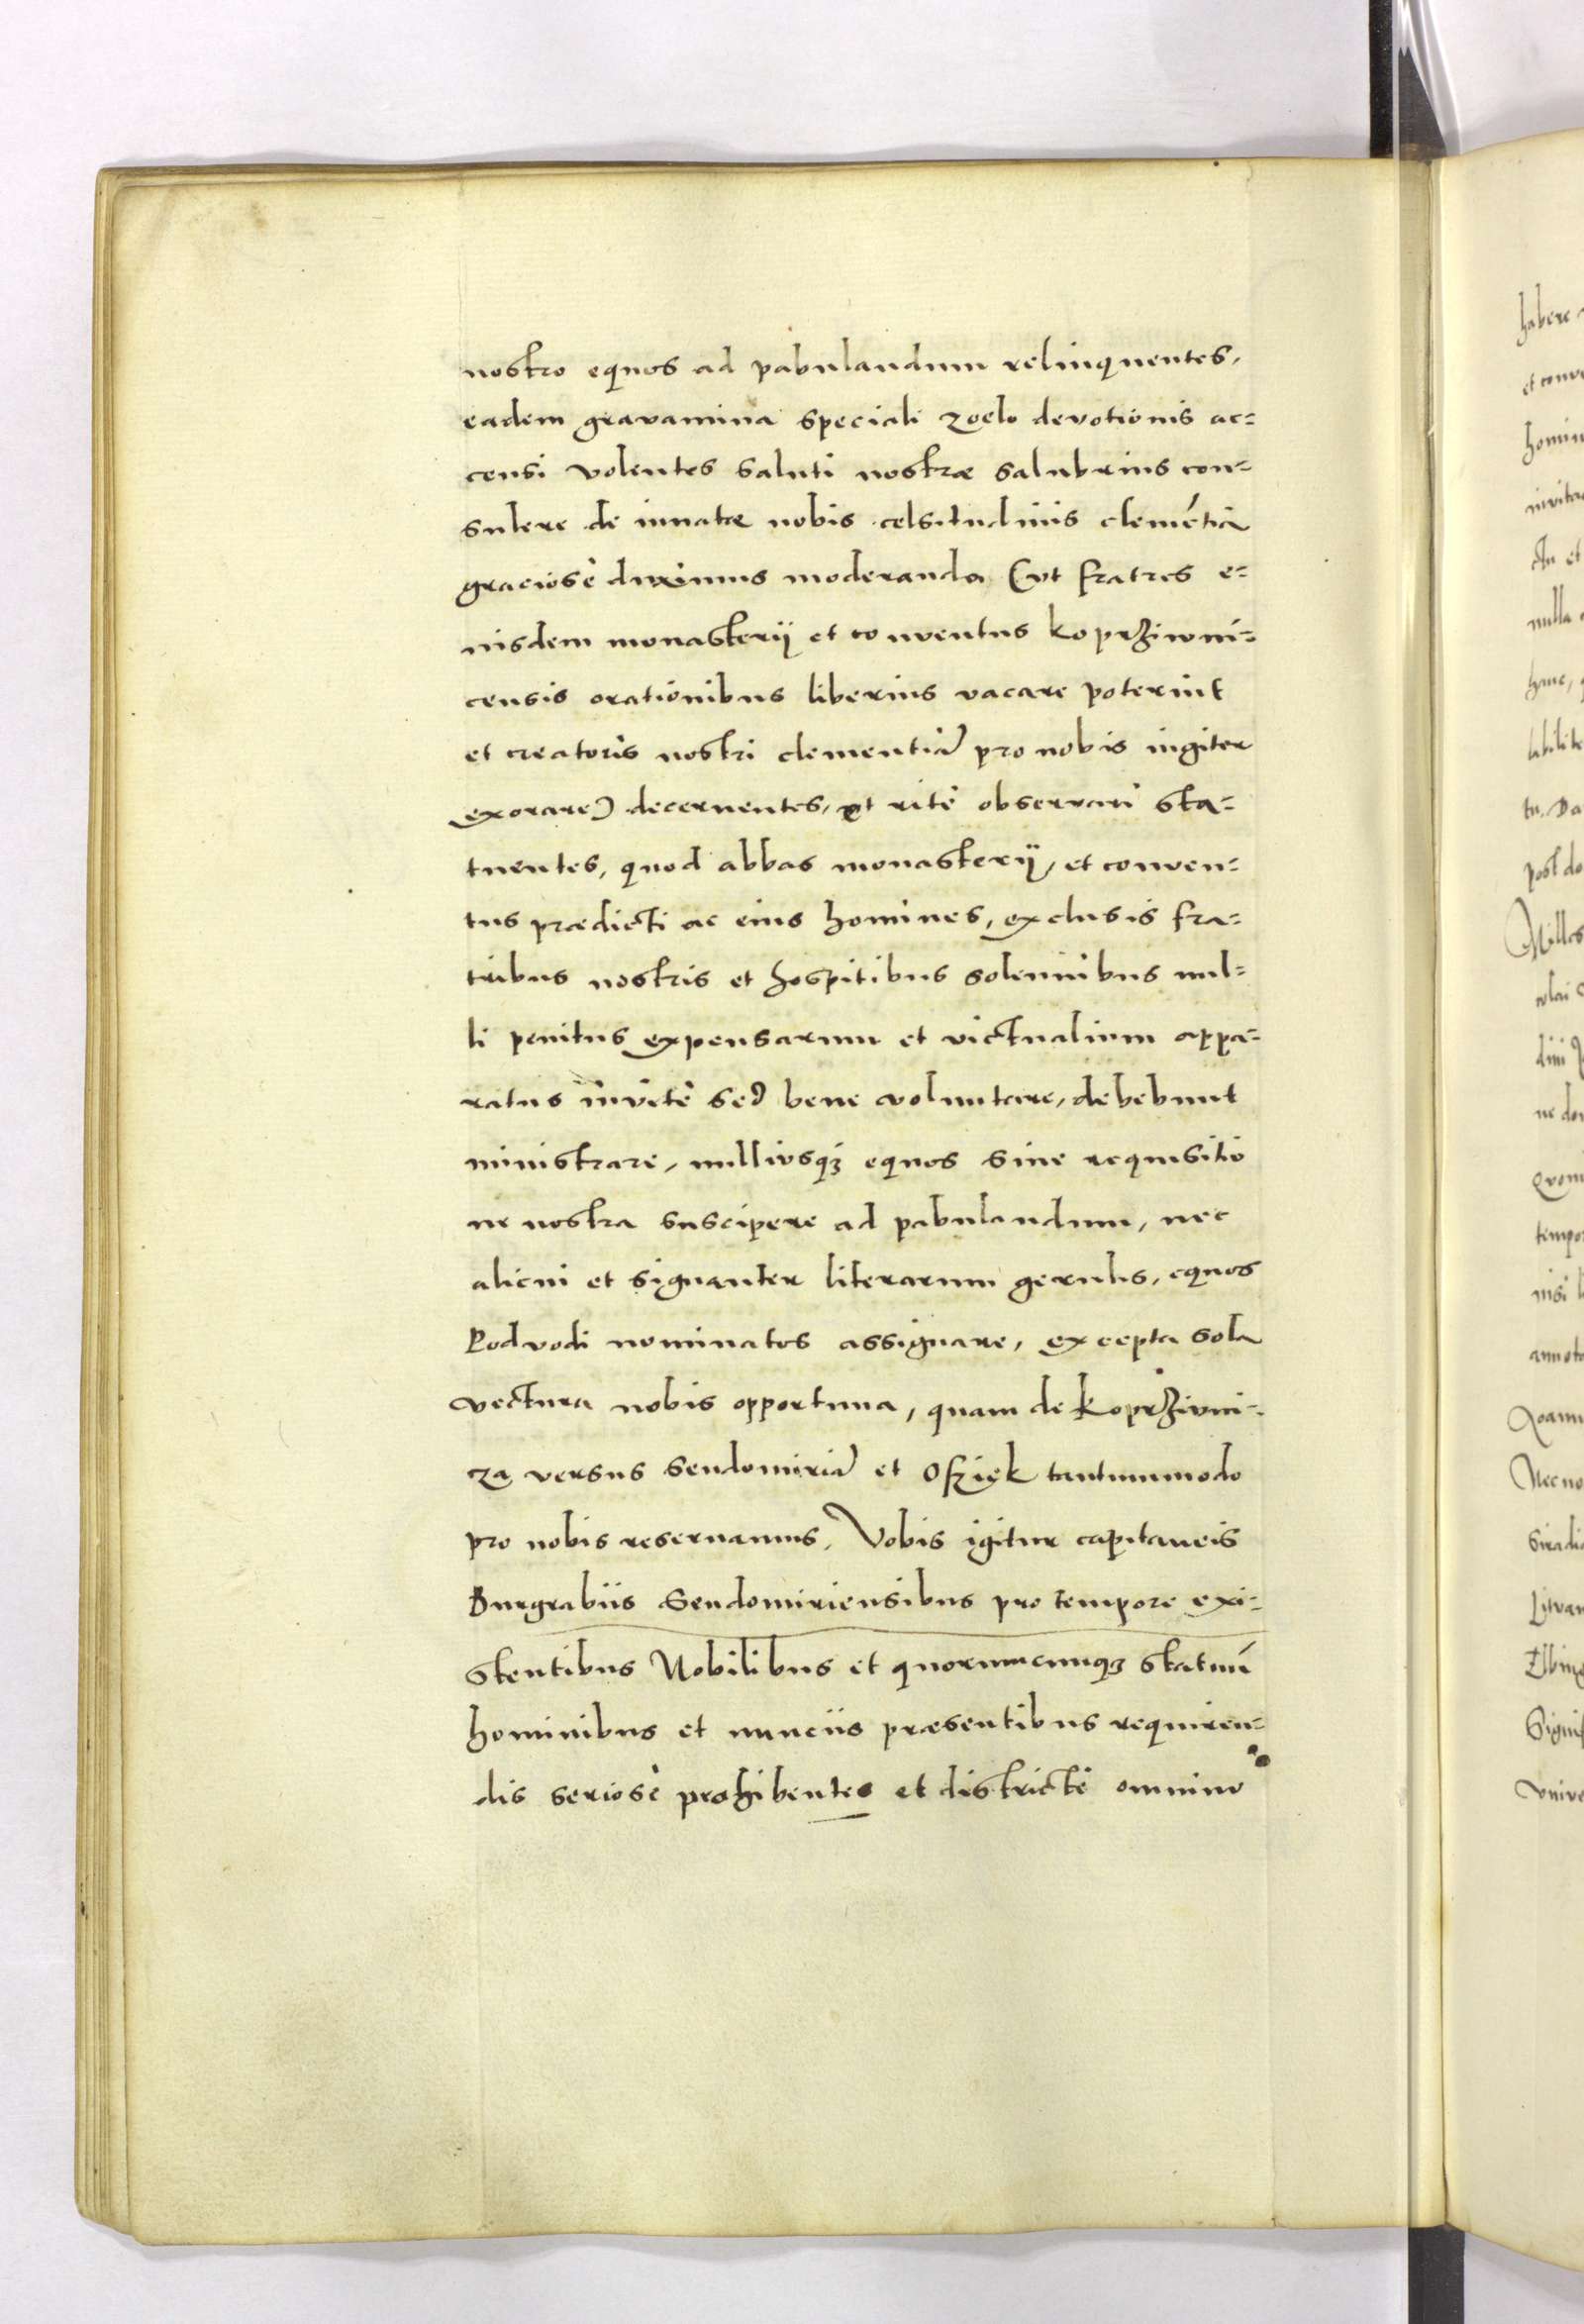 nostro equos ad pabulandum relinquentes,
eadem gravamina speciali zoelo devotionis ac=
censi volentes saluti nostræ salubrius con=
sulere de innatæ nobis celsitudinis clemẽtia
graciosè duximus moderanda (vt fratres e=
iusdem monasterij et conventus koprziwni=
censis orationibus liberius vacare poterint
et creatoris nostri clementiã pro nobis iugiter
exorare) decernentes, et ritè observari sta=
tuentes, quod abbas monasterij, et conven=
tus prædicti ac eius homines, exclusis fra=
tribus nostris et hospitibus solennibus nul=
li penitus expensarum et victualium appa=
ratus invitè sed bene voluntarie, debebunt
ministrare, nulliusqꝫ equos sine requisitio
ne nostra suscipere ad pabulandum, nec
alicui et signanter literarum gerulis, equos
Podvodi nominatos assignare, excepta sola
vectura nobis opportuna, quam de koprzivni=
za versus Sendomiriã et Osziek tantummodo
pro nobis reservamus, Vobis igitur capitaneis
Burgrabiis Sendomiriensibus pro tempore exi=
stentibus Nobilibus et quorumcumqꝫ statuũ
hominibus et nunciis præsentibus requiren=
dis seriosè prohibentes et districtè omnino
habere
et conve
homin
invita
ctu et
nulla
hanc,
labilite
tu. Da
post do
Milles
colai
dini
ne do
tempo
nisi
annota
Joann
Nec no
Siradi
Litvan
Elbing
Sigis
vnive